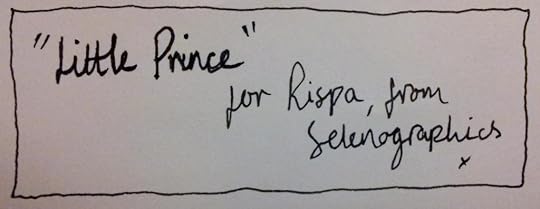 "Little Prince"
for Rispa, from
Selenographics
x